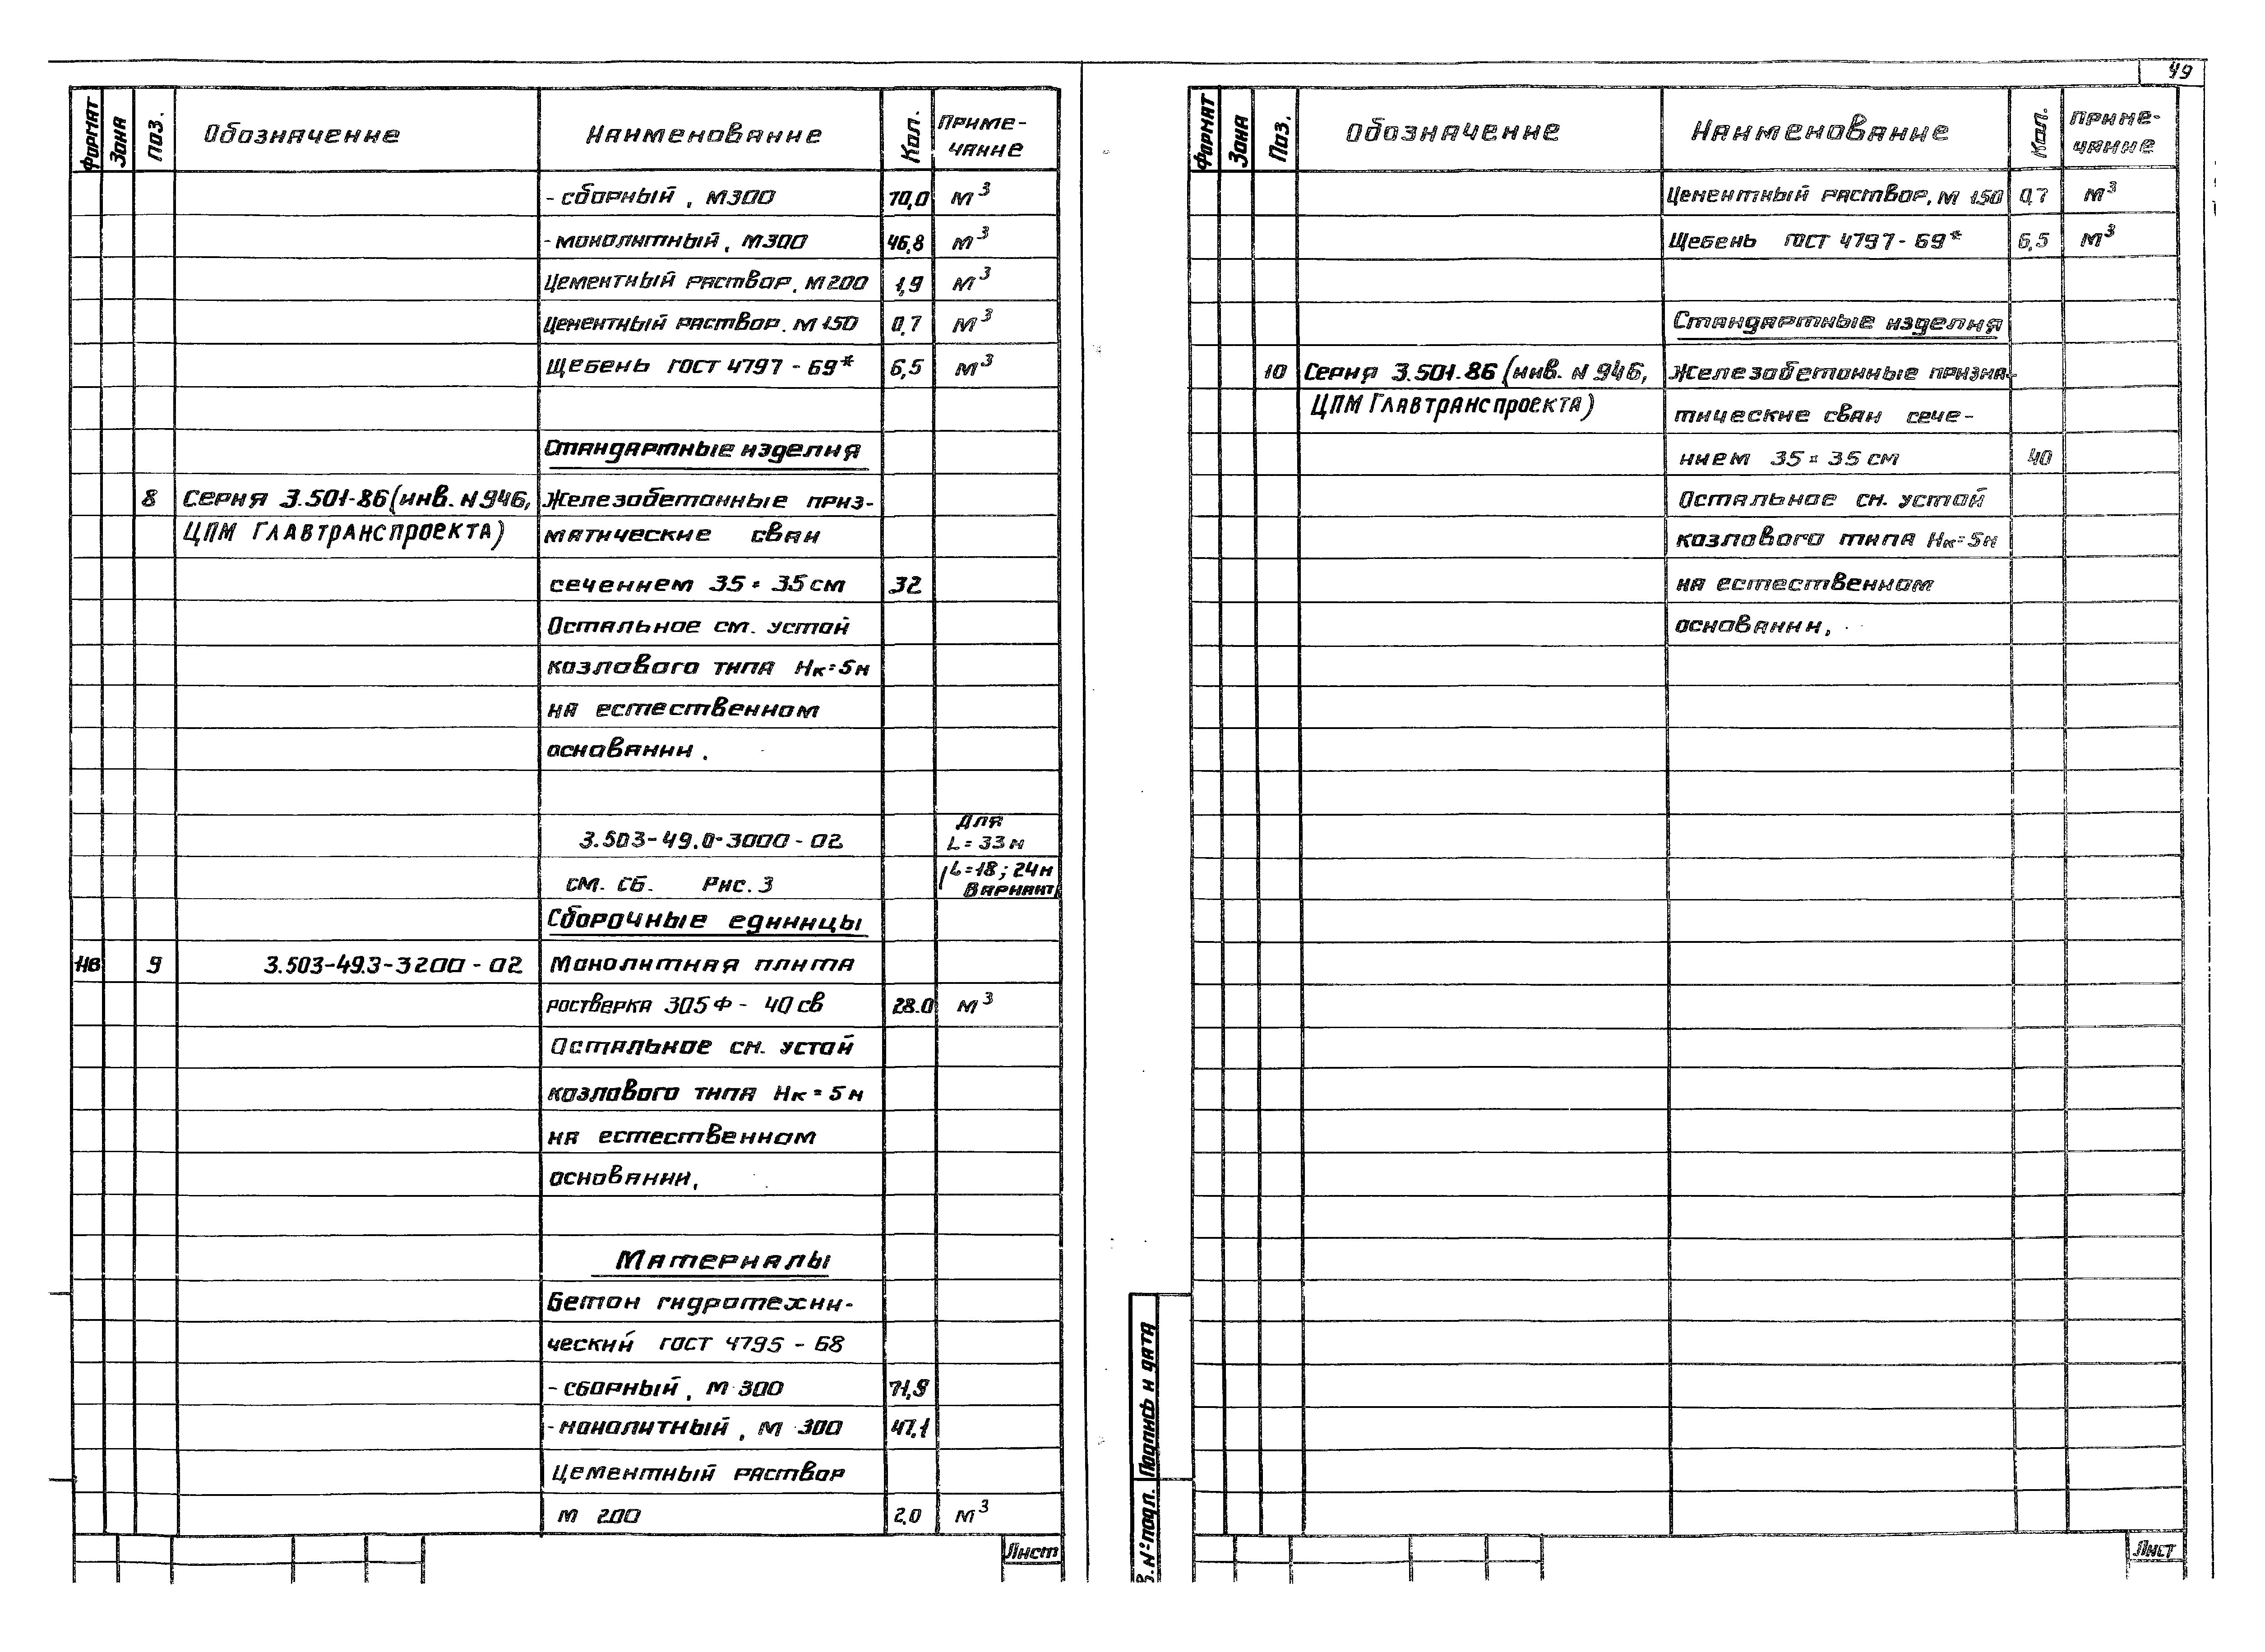 49
Формат Зона Поз. Обозначение Наименование Кол. Приме-
чание
- сборный, М300 70,0 м³
- монолитный, М300 46,8 м³
Цементный раствор, М200 1,9 м³
Цементный раствор. М 150 0,7 м³
Щебень ГОСТ 4797 - 69* 6,5 м³
Стандартные изделия
8 Серия 3.501-86 (инв. N 946, Железобетонные приз-
ЦПМ Главтранспроекта) матические сваи
сечением 35 × 35 см 32
Остальное см. устой
козлового типа Нк = 5м
на естественном
основании.
Для
3.503-49.0-3000 - 02 L = 33 м
(L=18; 24м
см. СБ. Рис. 3 Вариант)
Сборочные единицы
НВ 9 3.503-49.3-3200 - 02 Монолитная плита
ростверка 305 Ф - 40 св 28.0 м³
Остальное см. устой
козлового типа Нк = 5м
на естественном
основании.
Материалы
Бетон гидротехни-
ческий ГОСТ 4795 - 68
- сборный, М 300 71,9
- монолитный, М 300 47,1
Цементный раствор
М 200 2,0 м³
Лист
Формат Зона Поз. Обозначение Наименование Кол. Приме-
чание
Цементный раствор, М 150 0,7 м³
Щебень ГОСТ 4797 - 69* 6,5 м³
Стандартные изделия
10 Серия 3.501-86 (инв. N 946, Железобетонные призма-
ЦПМ Главтранспроекта) тические сваи сече-
нием 35 × 35 см 40
Остальное см. устой
козлового типа Нк = 5м
на естественном
основании.
В. № подл. Подпись и дата
Лист